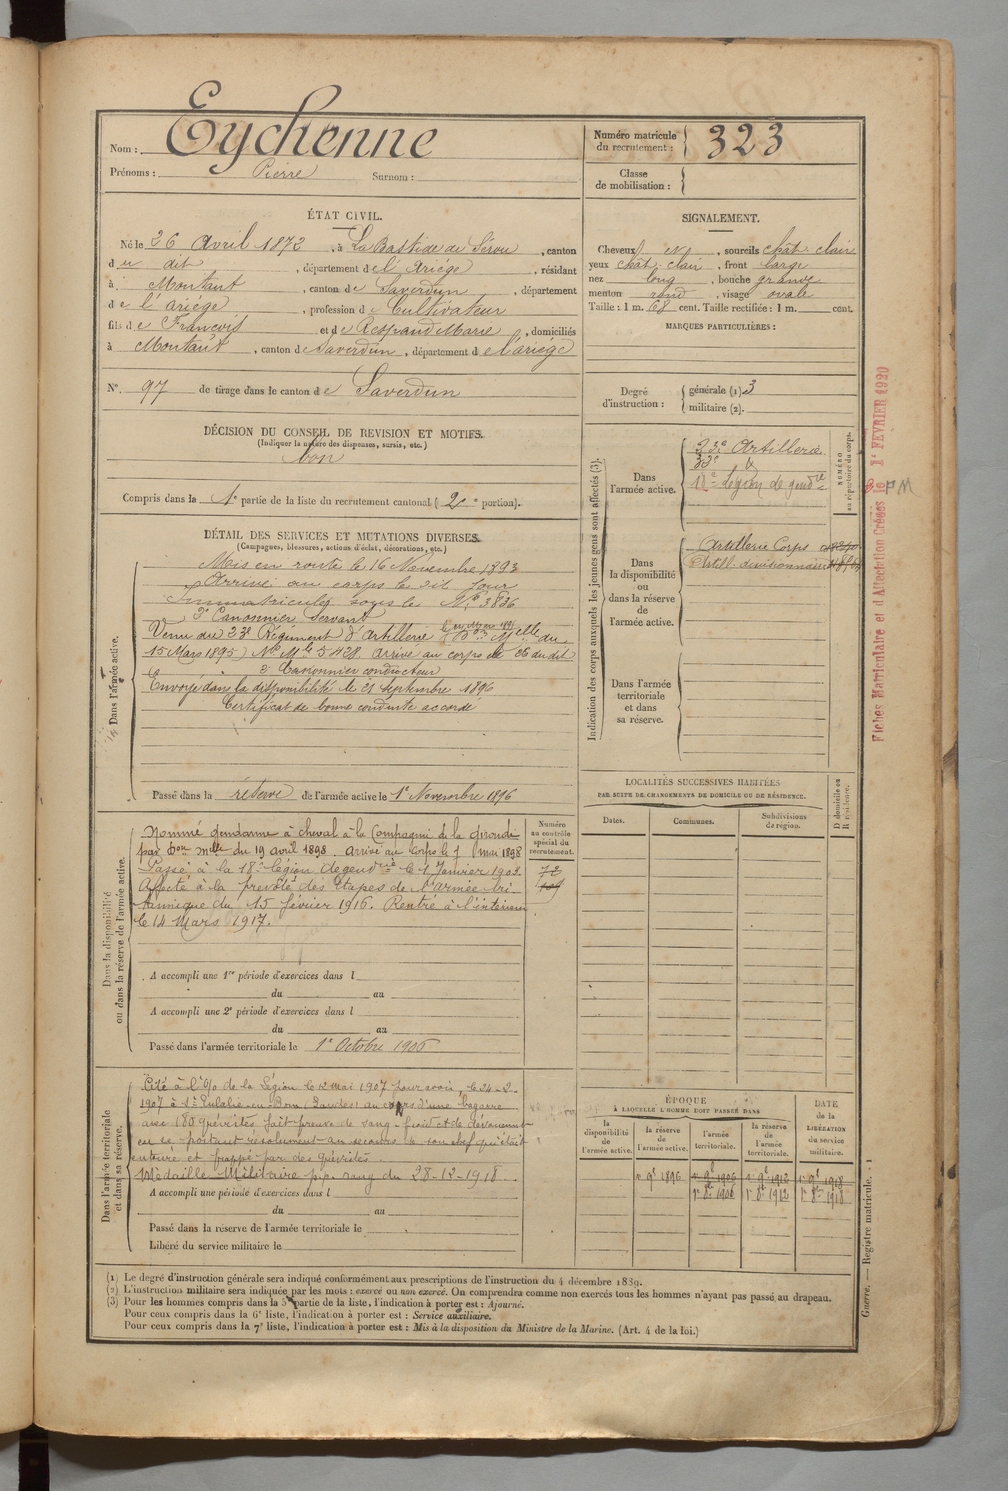 Nom : Eychenne
Prénoms : Pierre Surnom :
Numéro matricule
du recrutement : 323
Classe
de mobilisation :
ÉTAT CIVIL.
Né le 26 Avril 1872, à La Bastide de Sérou, canton
du dit, département de l'Ariége, résidant
à Montaut, canton de Saverdun, département
de l'ariége, profession de Cultivateur
fils de François et de Respaud Marie, domiciliés
à Montaut, canton de Saverdun, département de l'ariége
N° 97 de tirage dans le canton de Saverdun
SIGNALEMENT.
Cheveux, sourcils chât. clair
yeux chât. clair, front large
nez long, bouche grande
menton rond, visage ovale
Taille : 1 m. 68 cent. Taille rectifiée : 1 m. cent.
MARQUES PARTICULIÈRES :
Degré
d'instruction :
générale (1) 3
militaire (2).
DÉCISION DU CONSEIL DE REVISION ET MOTIFS.
(Indiquer la nature des dispenses, sursis, etc.)
bon
Compris dans la 1e partie de la liste du recrutement cantonal (2e portion).
DÉTAIL DES SERVICES ET MUTATIONS DIVERSES.
(Campagnes, blessures, actions d'éclat, décorations, etc.)
Dans l'armée active.
Mis en route le 16 Novembre 1893
Arrivé au corps le dit jour
Immatriculé sous le N° 3836
2e Canonnier Servant
Venu du 23e Régiment d'artillerie Mlle du
15 Mars 1895) No Mle 5428 arrivé au corps le 26 du dit
2e Canonnier conducteur
Envoyé dans la disponibilité le 21 septembre 1896
Certificat de bonne conduite accordé
Passé dans la réserve de l'armée active le 1er Novembre 1896
Indication des corps auxquels les jeunes gens sont affectés (3).
Dans
l'armée active.
23e Artillerie
33e
18e Légion de gendrie
NUMÉRO
au répertoire du corps.
Dans
la disponibilité
ou
dans la réserve
de
l'armée active.
Artillerie Corps
Artill. divisionnaire
Dans l'armée
territoriale
et dans
sa réserve.
Fiches Matriculaire et d'Affectation Créées le 1er FEVRIER 1920
PM
Dans la disponibilité
ou dans la réserve de l'armée active.
Nommé gendarme à cheval à la Compagnie de la Gironde
par Don mlle du 19 avril 1898 arrivé au Corps le 1 mai 1898
Passé à la 18e légion de gendrie le 1 Janvier 1903.
Affecté à la prévôté des Etapes de l'armée bri-
tannique du 15 février 1916. Rentré à l'intérieur
le 14 Mars 1917.
Numéro
au contrôle
spécial du
recrutement.
A accompli une 1re période d'exercices dans l
du au
A accompli une 2e période d'exercices dans l
du au
Passé dans l'armée territoriale le 1er Octobre 1906
LOCALITÉS SUCCESSIVES HABITÉES
PAR SUITE DE CHANGEMENTS DE DOMICILE OU DE RÉSIDENCE.
Dates. Communes. Subdivisions
de région.
D domicile ou
R résidence.
Dans l'armée territoriale
et dans sa réserve.
Cité à l'O/ de la Légion le 12 mai 1907 pour avoir, le 24-2-
1907 à Ste Eulalie-en-Born (Landes) au cours d'une bagarre
avec 180 grévistes fait preuve de sang-froid et de dévouement
en se portant résolument au secours de son chef qui était
entouré et frappé par des grévistes.
Médaille Militaire p.p. rang du 28-12-1918
A accompli une période d'exercices dans l
du au
Passé dans la réserve de l'armée territoriale le
Libéré du service militaire le
ÉPOQUE
À LAQUELLE L'HOMME DOIT PASSER DANS
la
disponibilité
de
l'armée active.
la réserve
de
l'armée active.
l'armée
territoriale.
la réserve
de
l'armée
territoriale.
DATE
de la
LIBÉRATION
du service
militaire.
1er 9e 1896 1er 9e 1906 1er 9e 1912 1er 9e 1918
1er 8e 1906 1er 8e 1912 1er 8e 1918
(1) Le degré d'instruction générale sera indiqué conformément aux prescriptions de l'instruction du 4 décembre 1889.
(2) L'instruction militaire sera indiquée par les mots : exercé ou non exercé. On comprendra comme non exercés tous les hommes n'ayant pas passé au drapeau.
(3) Pour les hommes compris dans la 5e partie de la liste, l'indication à porter est : Ajourné.
Pour ceux compris dans la 6e liste, l'indication à porter est : Service auxiliaire.
Pour ceux compris dans la 7e liste, l'indication à porter est : Mis à la disposition du Ministre de la Marine. (Art. 4 de la loi.)
Guerre. — Registre matricule. . 1